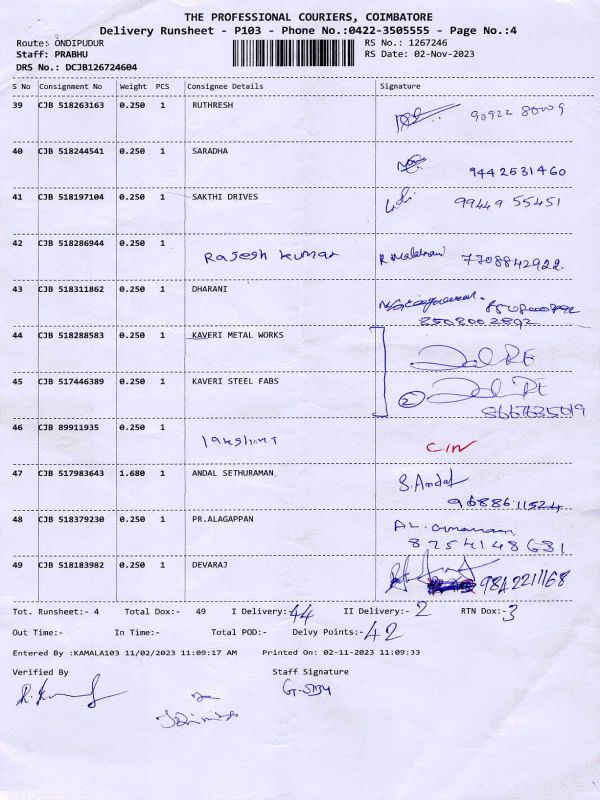 THE PROFESSIONAL COURIERS, COIMBATORE
Delivery Runsheet - P103 - Phone No.:0422-3505555 - Page No.:4
Route: ONDIPUDUR RS No.: 1267246
Staff: PRABHU RS Date: 02-Nov-2023
DRS No.: DCJB126724604
S No Consignment No Weight PCS Consignee Details Signature
39 CJB 518263163 0.250 1 RUTHRESH
40 CJB 518244541 0.250 1 SARADHA
9442531460
41 CJB 518197104 0.250 1 SAKTHI DRIVES 99449 55451
42 CJB 518286944 0.250 1
Rajesh kumar 7708842922
43 CJB 518311862 0.250 1 DHARANI
8508002892
44 CJB 518288583 0.250 1 KAVERI METAL WORKS
45 CJB 517446389 0.250 1 KAVERI STEEL FABS
2
46 CJB 89911935 0.250 1
lakshmi CIN
47 CJB 517983643 1.680 1 ANDAL SETHURAMAN
S.Andal
9688611524
48 CJB 518379230 0.250 1 PR.ALAGAPPAN
8754148631
49 CJB 518183982 0.250 1 DEVARAJ
9842211168
Tot. Runsheet:- 4 Total Dox:- 49 I Delivery:- 44 II Delivery:- 2 RTN Dox:- 3
Out Time:- In Time:- Total POD:- Delvy Points:- 42
Entered By :KAMALA103 11/02/2023 11:09:17 AM Printed On: 02-11-2023 11:09:33
Verified By Staff Signature